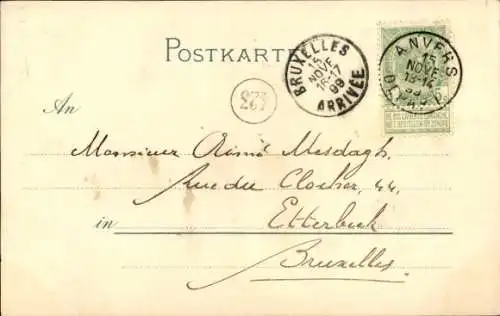 POSTKARTE
BRUXELLES
15
NOVE
16-17
99
ARRIVÉE
ANVERS
15
NOVE
DEPART
An
Monsieur Aimé Mesdagh.
Rue du Clocher, 44.
in Etterbeek
Bruxelles